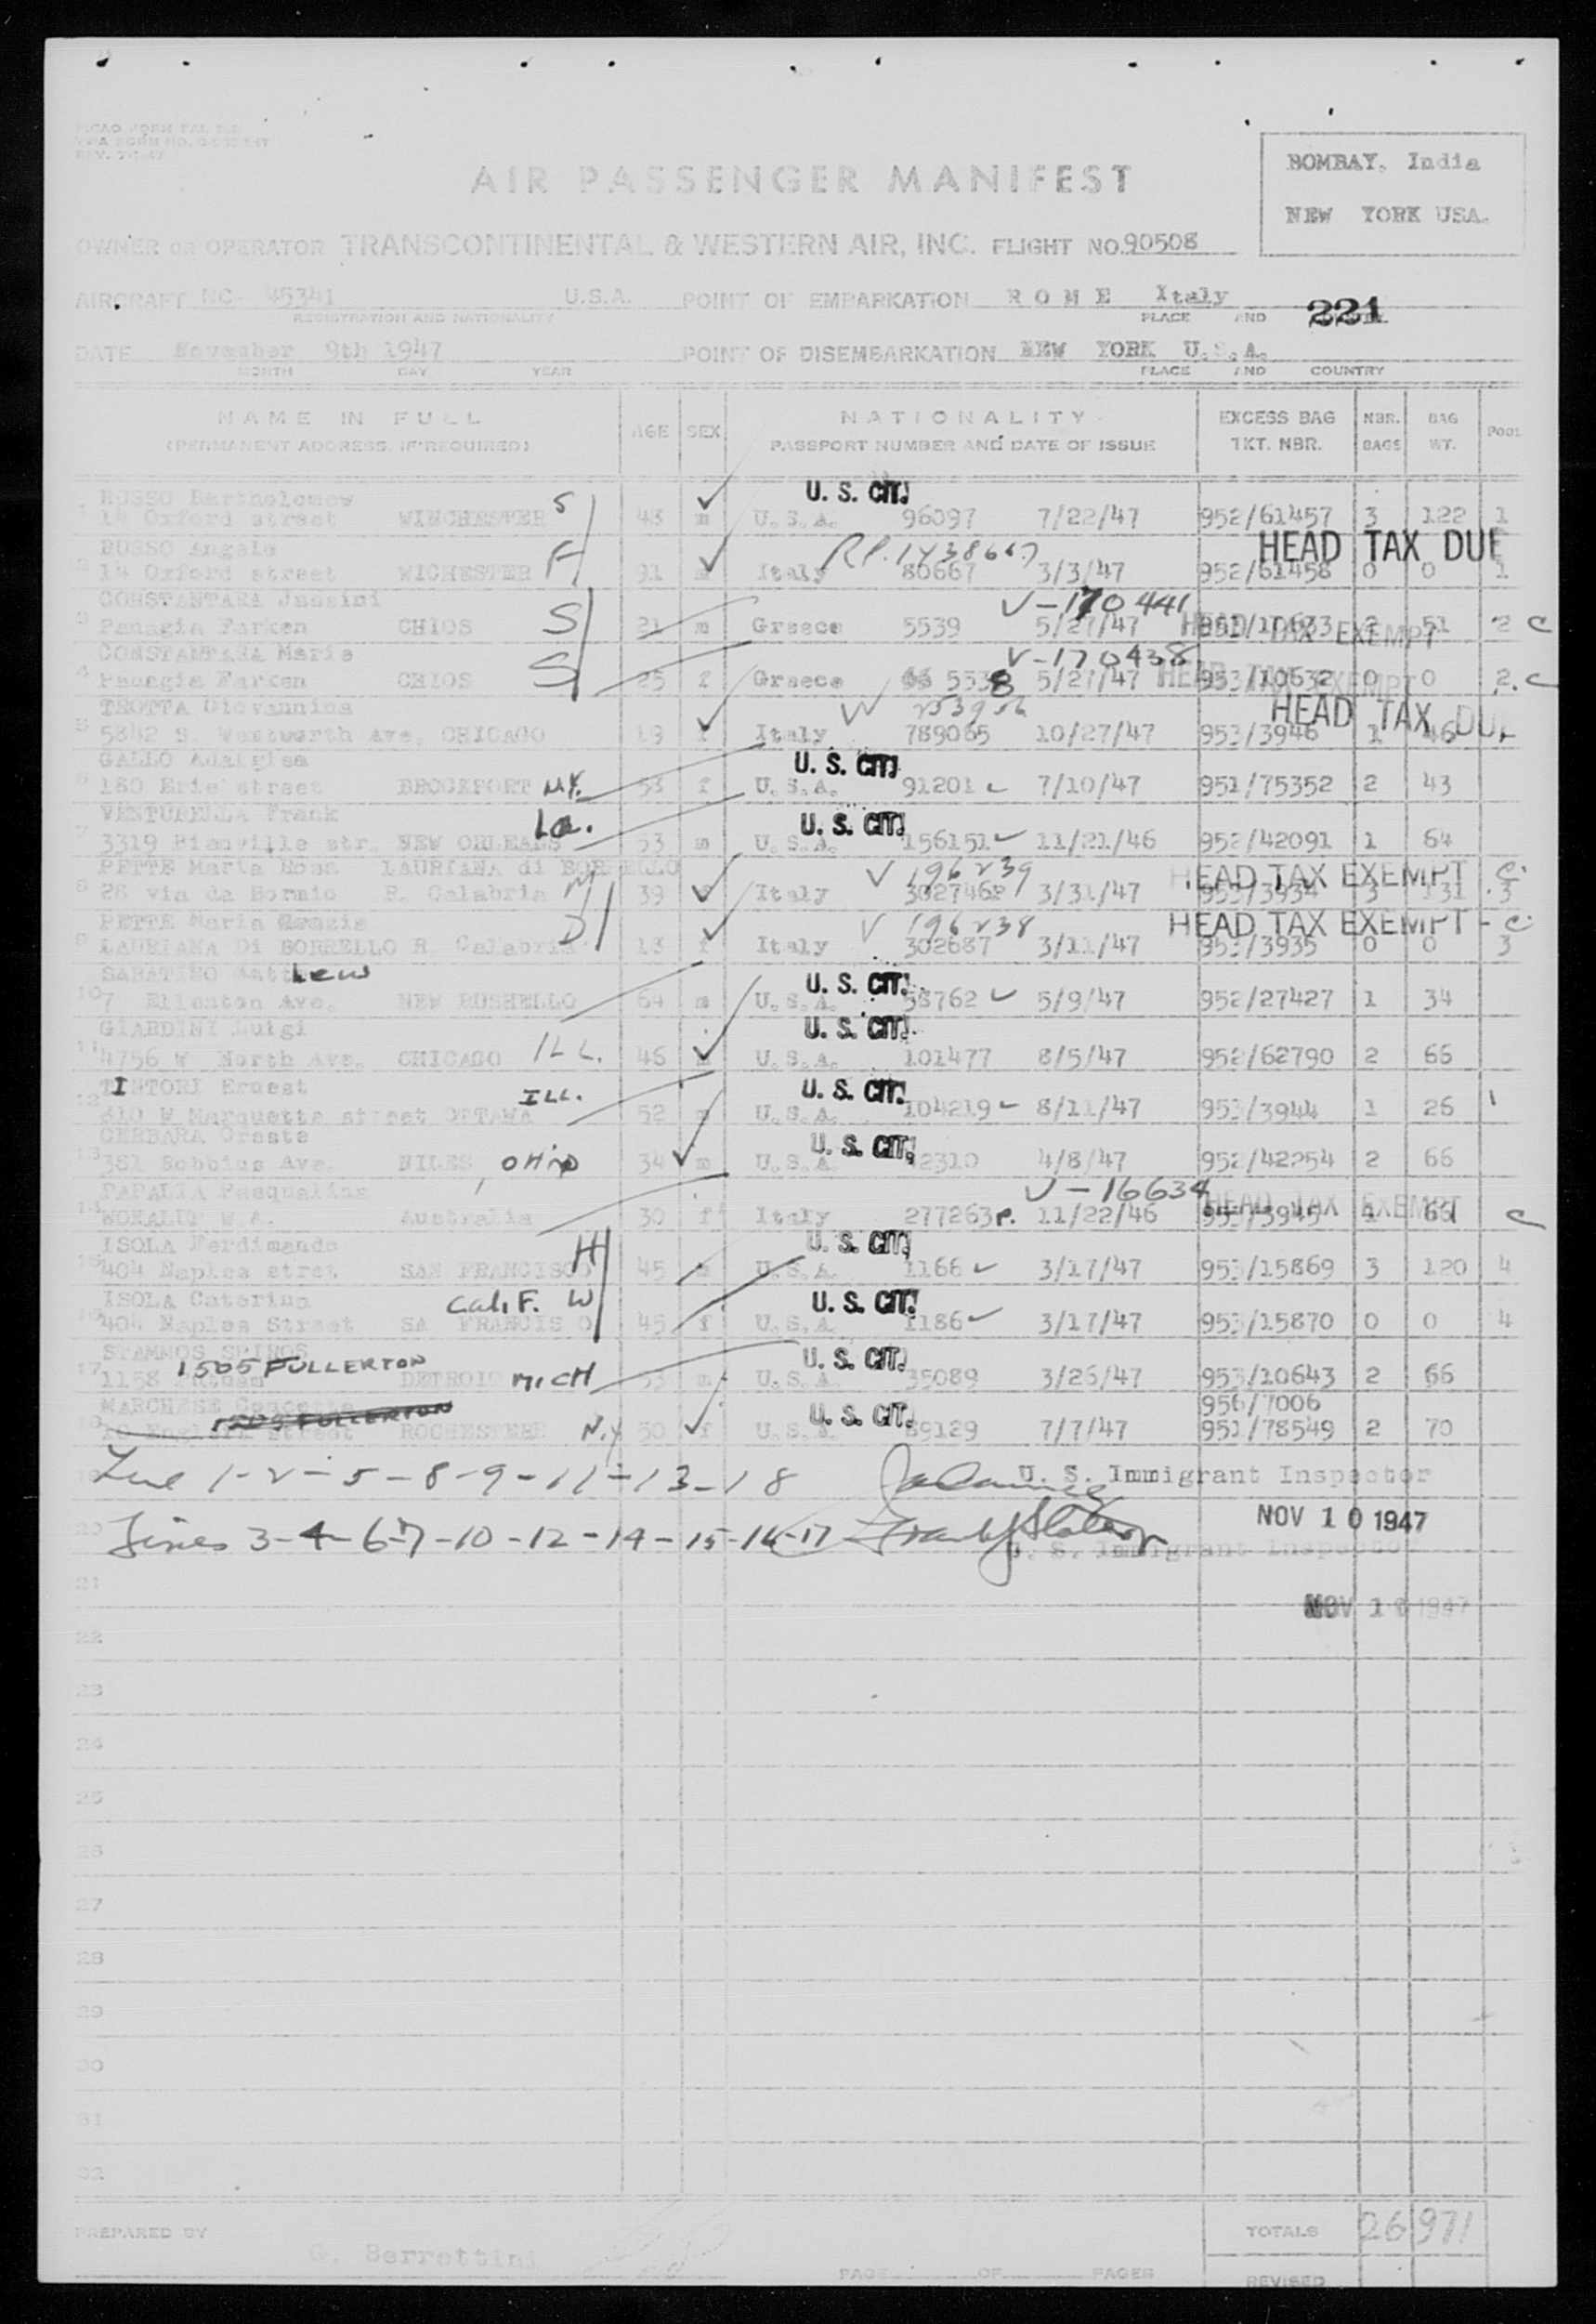 AIR PASSENGER MANIFEST
BOMBAY, India
NEW YORK USA.
OWNER OR OPERATOR TRANSCONTINENTAL & WESTERN AIR, INC. FLIGHT NO. 90508
AIRCRAFT NC- 45341 U.S.A. POINT OF EMBARKATION ROME Italy 221
REGISTRATION AND NATIONALITY PLACE AND
DATE November 9th 1947 POINT OF DISEMBARKATION NEW YORK U.S.A.
MONTH DAY YEAR PLACE AND COUNTRY
NAME IN FULL AGE SEX NATIONALITY EXCESS BAG NBR. BAG POOL
(PERMANENT ADDRESS, IF REQUIRED) PASSPORT NUMBER AND DATE OF ISSUE TKT. NBR. BAGS WT.
1 ROSSO Bartholomew S U. S. CIT.
14 Oxford street WINCHESTER 43 m U.S.A. 96097 7/22/47 952/61457 3 122 1
ROSSO Angelo F HEAD TAX DUE
2 14 Oxford street WICHESTER 91 m Italy 80667 3/3/47 952/61458 0 0 1
CONSTANTARA Jassini S V-170441
3 Panagia Farken CHIOS 21 m Greece 5539 5/27/47 2 51 2 C
HEAD TAX EXEMPT
CONSTANTARA Maria S V-170438
4 Panagia Farken CHIOS 25 f Greece 5538 5/27/47 953/10632 0 0 2. C
HEAD TAX EXEMPT
TROTTA Giovannina HEAD TAX DUE
5 5842 S. Wentworth Ave. CHICAGO f Italy 789065 10/27/47 953/3946 1 46
GALLO Adalgisa U. S. CIT.
6 180 Erie street BROCKPORT N.Y. 53 f U.S.A. 91201 7/10/47 951/75352 2 43
VENTURELLA Frank La. U. S. CIT.
7 3319 Bienville str. NEW ORLEANS 53 m U.S.A. 156151 11/21/46 952/42091 1 64
PETTE Maria Rosa LAURIANA di BORRELLO M V 196239 HEAD TAX EXEMPT C.
8 28 via da Bormio R. Calabria 39 f Italy 302746 3/31/47 953/3934 3 131 3
PETTE Maria Grazia D V 196238 HEAD TAX EXEMPT - C.
9 LAURIANA Di BORRELLO R. Calabria 13 f Italy 302687 3/11/47 953/3935 0 0 3
SABATINO Lew U. S. CIT.
10 7 Ellenton Ave. NEW ROSHELLO 64 m U.S.A. 58762 5/9/47 952/27427 1 34
GIARDINI Luigi U. S. CIT.
11 4756 W North Ave. CHICAGO ILL. 46 m U.S.A. 101477 8/5/47 952/62790 2 66
TINTORI Ernest ILL. U. S. CIT.
12 310 W Marquette street OTTAWA 52 m U.S.A. 104219 8/11/47 953/3944 1 26
CERBARA Oreste U. S. CIT.
13 381 Robbins Ave. NILES, OHIO 34 m U.S.A. 2310 4/8/47 952/42254 2 66
PAPALIA Pasqualina V-16634 HEAD TAX EXEMPT
14 W.A. Australia 30 f Italy 277263 P. 11/22/46 953/3945 1 66 C
ISOLA Ferdimando H U. S. CIT.
15 404 Naples stret SAN FRANCISCO 45 m U.S.A. 1166 3/17/47 953/15869 3 120 4
ISOLA Caterina Calif. W U. S. CIT.
16 404 Naples Street SA FRANCIS O 45 f U.S.A. 1186 3/17/47 953/15870 0 0 4
STAMMOS SPIROS 1505 FULLERTON U. S. CIT.
17 1158 DETROIT MICH 53 m U.S.A. 35089 3/26/47 953/10643 2 66
MARCHESE Concetta 1505 FULLERTON U. S. CIT. 956/7006
18 street ROCHESTER N.Y 50 f U.S.A. 89129 7/7/47 951/78549 2 70
19 Line 1-2-5-8-9-11-13-18 U. S. Immigrant Inspector
20 Lines 3-4-6-7-10-12-14-15-16-17 NOV 10 1947
U. S. Immigrant Inspector
21
NOV 10 1947
22
23
24
25
26
27
28
29
30
31
32
PREPARED BY G. Berrettini TOTALS 26 971
PAGE OF PAGES REVISED